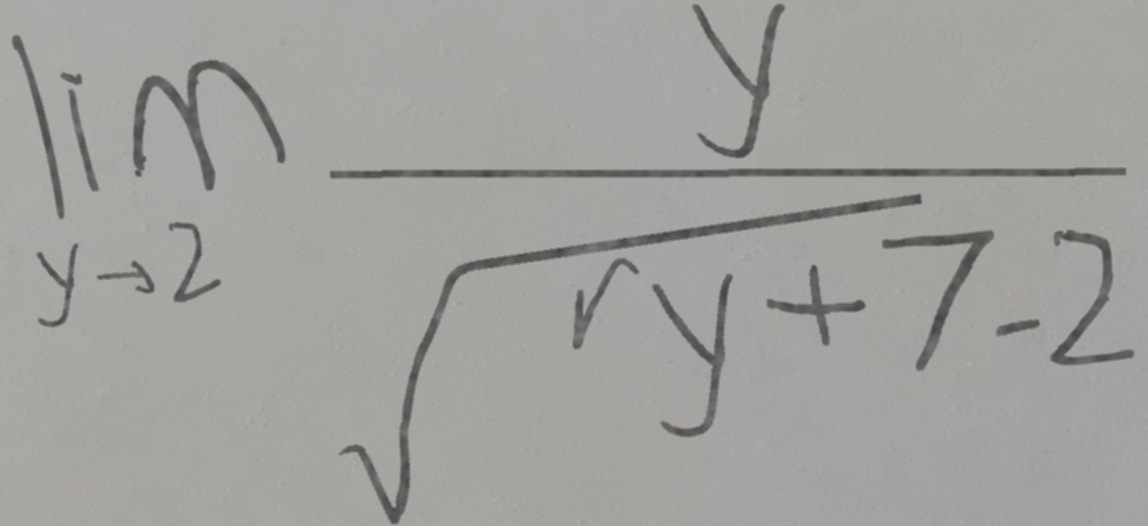 \lim_{y \to 2} \frac{y}{\sqrt{ry+7}-2}